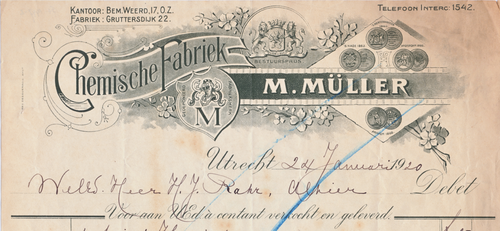 KANTOOR: BEM. WEERD, 17, O.Z.
FABRIEK: GRUTTERSDIJK 22.
TELEFOON INTERC: 1542.
Chemische Fabriek
BESTUURSPRIJS
M. MÜLLER
M
Utrecht 24 Januari 1920
Heer H. J. Rohr, Alhier
Debet
Voor aan UEd. à contant verkocht en geleverd.